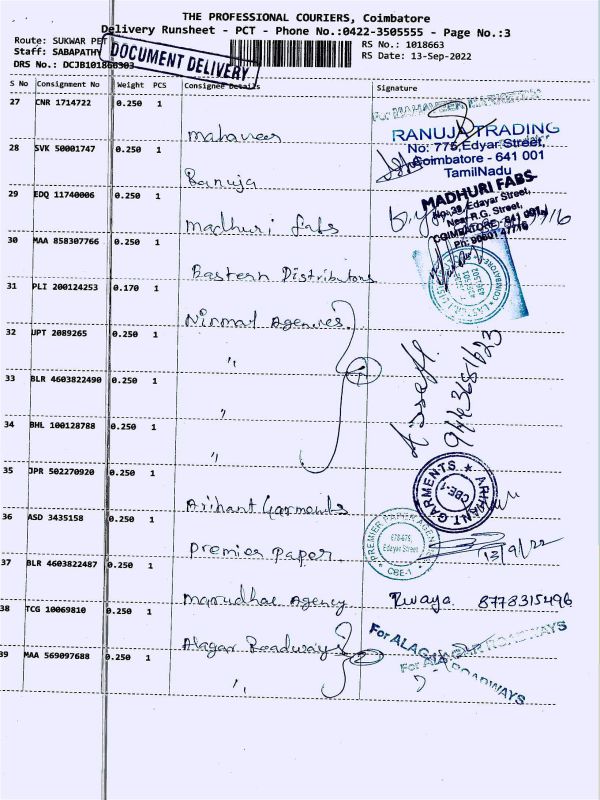 THE PROFESSIONAL COURIERS, Coimbatore
Delivery Runsheet - PCT - Phone No.:0422-3505555 - Page No.:3
Route: SUKWAR PET
RS No.: 1018663
Staff: SABAPATHY
RS Date: 13-Sep-2022
DOCUMENT DELIVERY
DRS No.: DCJB101866303
S No Consignment No Weight PCS Consignee Details Signature
27 CNR 1714722 0.250 1
Mahaveer
RANUJA TRADING
No: 775, Edyar Street,
Coimbatore - 641 001
TamilNadu
28 SVK 50001747 0.250 1
Ranuja
29 EDQ 11740006 0.250 1
Madhuri Fabs
MADHURI FABS
No. 39, Edayar Street,
Near R.G. Street,
COIMBATORE - 641 001.
30 MAA 858307766 0.250 1
Eastern Distributors
31 PLI 200124253 0.170 1
Nirmal Agencies
32 UPT 2089265 0.250 1
"
33 BLR 4603822490 0.250 1
"
34 BHL 100128788 0.250 1
"
4
9443681623
35 JPR 502270920 0.250 1
Arihant Garments
ARIHANT GARMENTS
CBE-1
36 ASD 3435158 0.250 1
Premier Paper
PREMIER PAPER AGENCIES
678-679,
Edayar Street
CBE-1
13/9/22
37 BLR 4603822487 0.250 1
Marudhar Agency
8778315496
38 TCG 10069810 0.250 1
Alagar Roadways
2
For ALAGAR ROADWAYS
For ALAGAR ROADWAYS
39 MAA 569097688 0.250 1
"